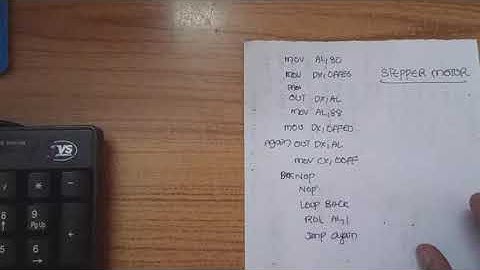 MOV AL,80
MOV DX,0FFE6
STEPPER MOTOR
OUT DX,AL
MOV AL,88
MOV DX,0FFE0
Again OUT DX,AL
MOV CX,00FF
Back NOP
NOP
LOOP BACK
ROL AL,1
Jmp Again
VS
9
PgUp
8
6